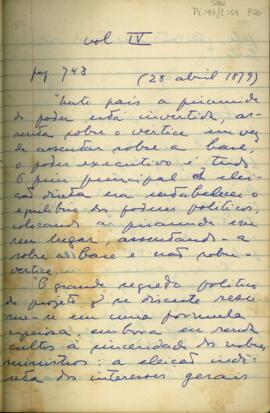 vol IV
pag 748
(28 abril 1879)
"Neste país a piramide
do poder está invertida, as-
senta sobre o vertice em vez
de assentar sobre a base,
o poder executivo é tudo.
O fim principal da elei-
ção direta era restabelecer o
equilibrio dos poderes politicos,
colocando a piramide em
seu lugar, assentando-a
sobre a base e não sobre
vertice.
"O grande segredo politico
do projeto q se discute resu-
me-se em uma formula
embora eu renda
cultos à sinceridade dos nobres
ministros: a eleição indi-
dos interesses gerais